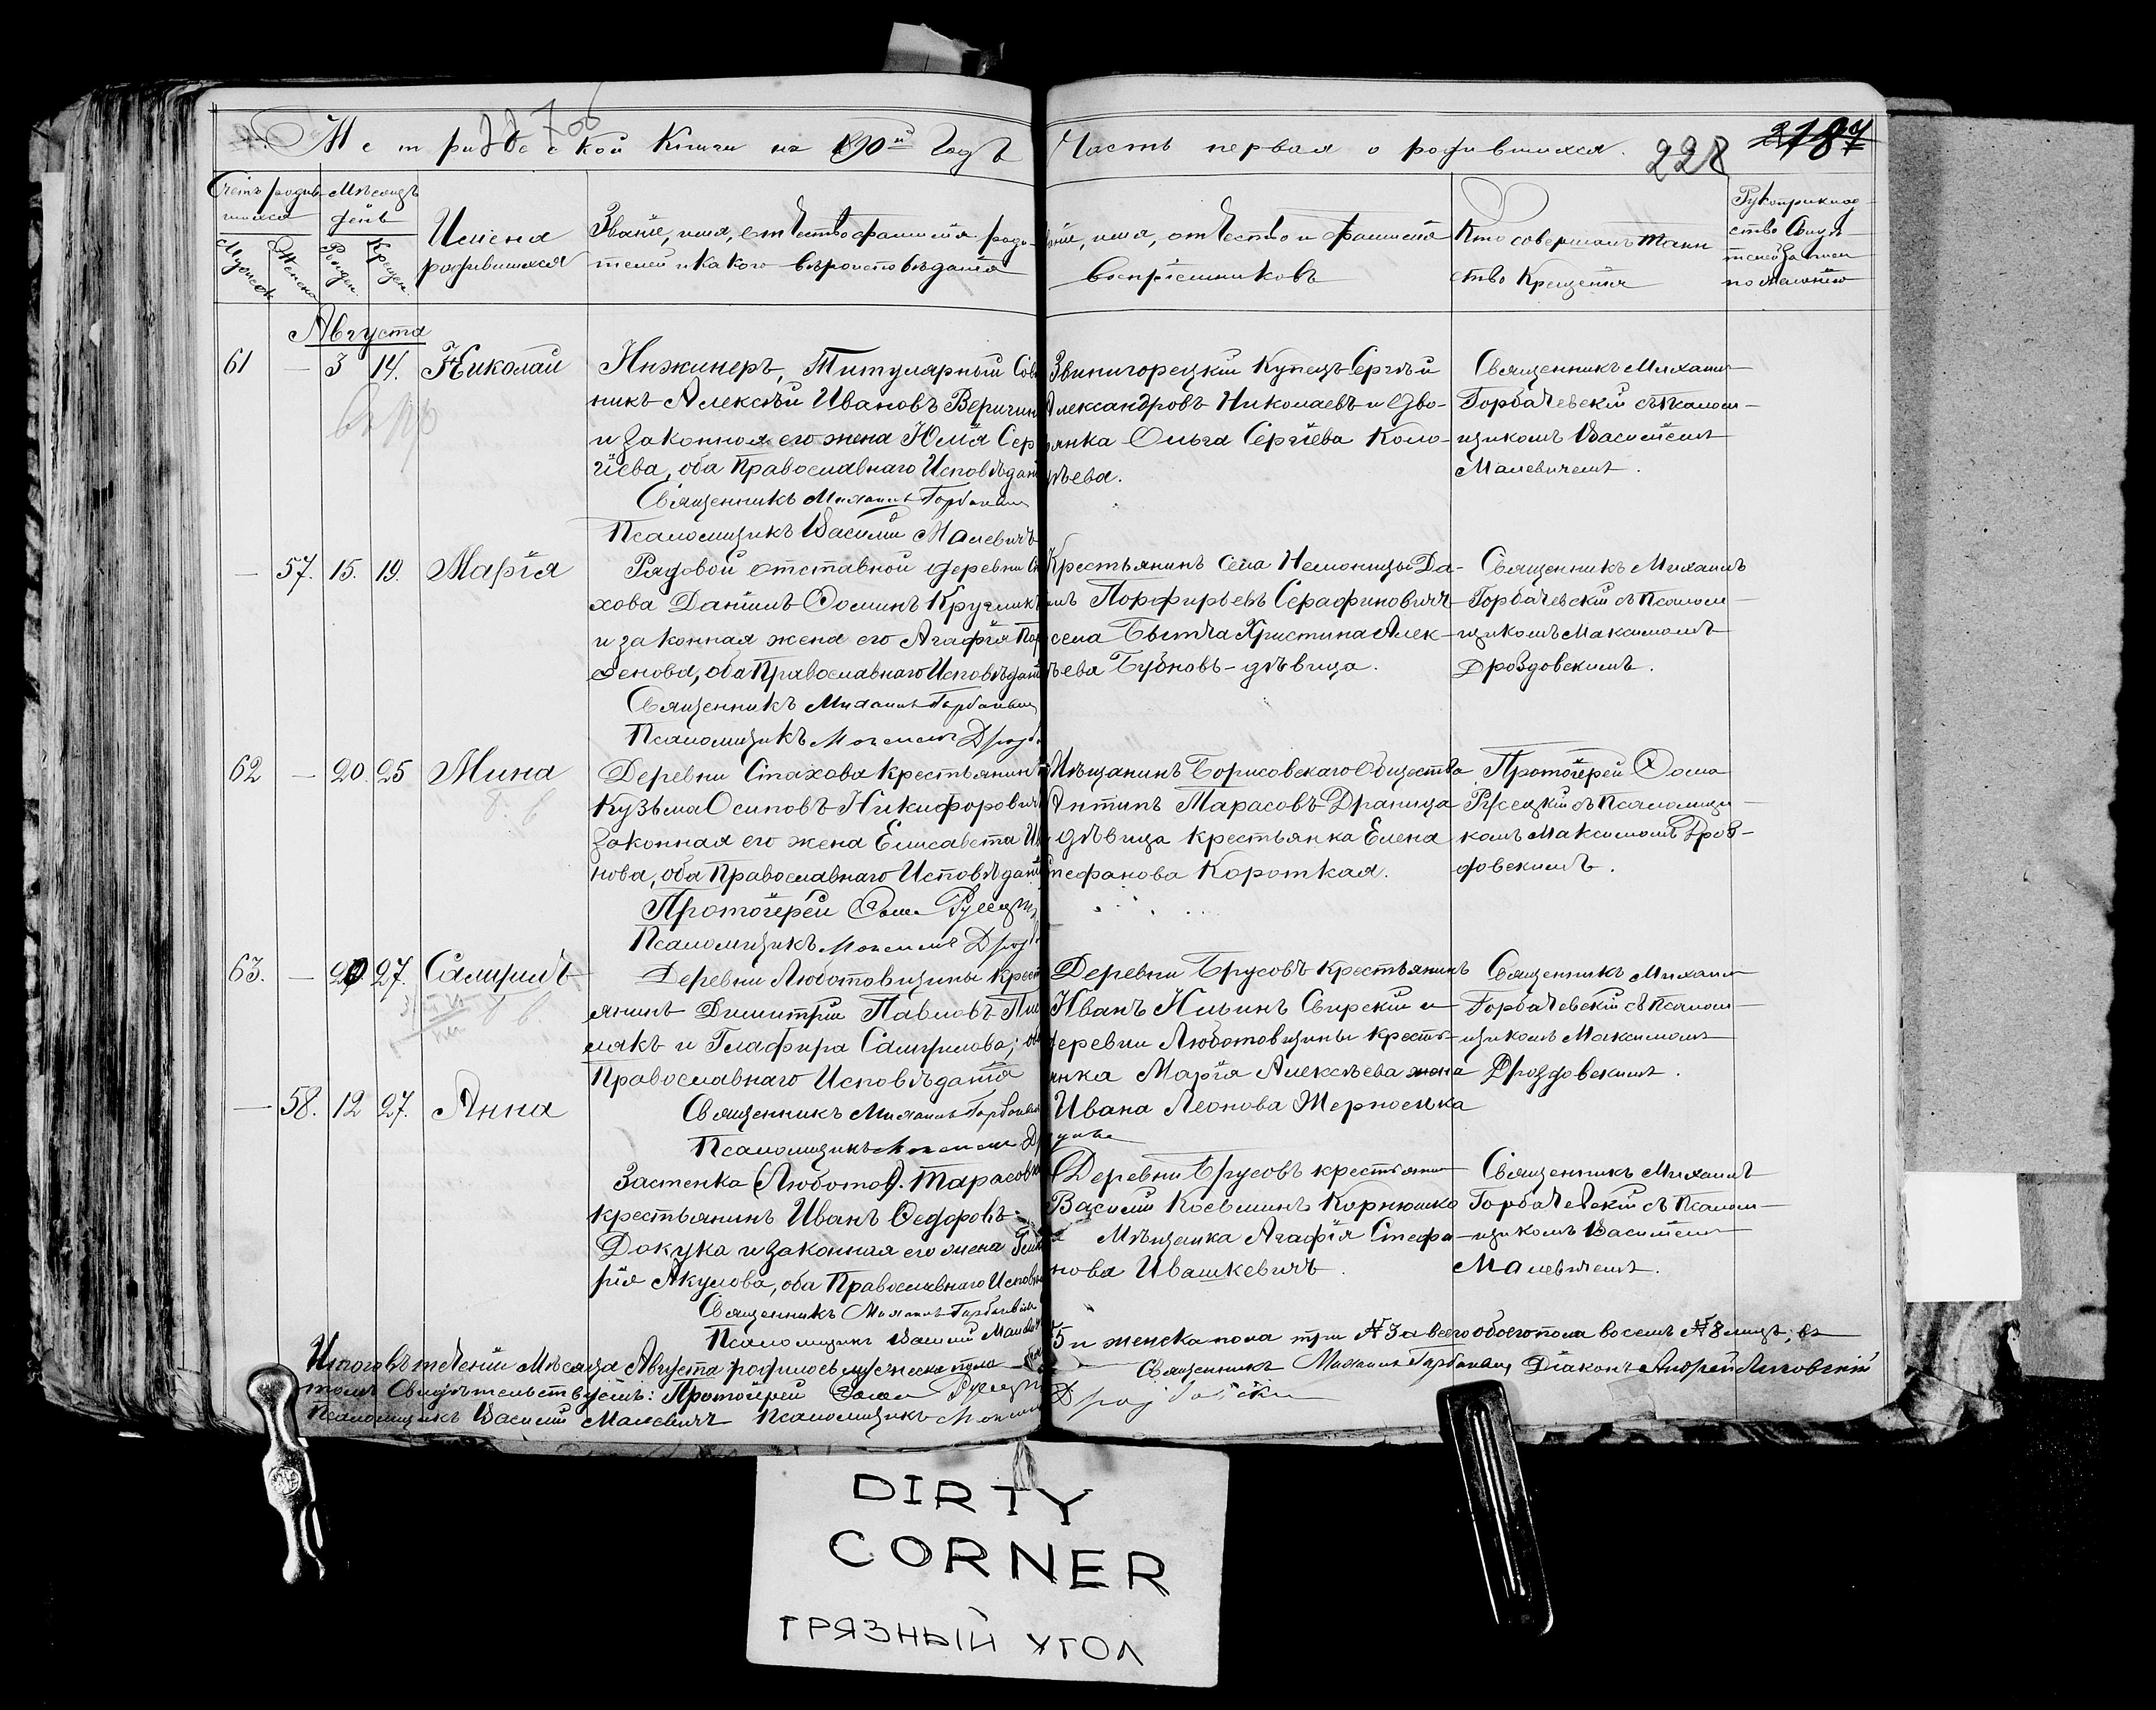 Метрической Книги на 1890й Годъ
Часть первая о родившихся.
228
Счетъ родив-
шихся
Мѣсяцъ
день
Мужеск
Женск
Рожден.
Крещен.
Имена
родившихся
Званіе, имя, отчество фамилія роди-
телей и какого вѣроисповѣданія
имя, отчество и фамилія
воспріемниковъ
Кто совершалъ таин
ство Крещенія
Рукоприклад-
ство Свидѣ-
телей записи
по желанію
Августа
61 — 3 14. Николай
Инжинеръ, Титулярный Сов
никъ Алексѣй Ивановъ Веричин
и законная его жена Юлія Сер
гіева, оба Православнаго Исповѣдан
Священникъ Михаилъ Горбачев
Псаломщикъ Василій Малевичъ
Звинигорецкій Купецъ Сергѣй
Александровъ Николаевъ и Дво-
рянка Ольга Сергіева Коло-
ѣева.
Священникъ Михаил
Горбачевскій съ псалом-
щикомъ Василіемъ
Малевичемъ.
— 57. 15. 19. Марія
Рядовой отставной деревни Ст
хова Даніилъ Ѳоминъ Кругликъ
и законная жена его Агафія Пар
фенова, оба Православнаго Исповѣдан
Священникъ Михаилъ Горбачевск
Псаломщикъ Максимъ Дрозд
Крестьянинъ села Немоницы Да-
илъ Порфирьевъ Серафиновичъ
села Бытча Христина Алек-
ѣева Бубновъ-дѣвица.
Священникъ Михаилъ
Горбачевскій съ псалом-
щикомъ Максимомъ
Дроздовскимъ.
62 — 20. 25 Мина
Деревни Стахова крестьянинъ
Кузьма Осиповъ Никифоровичъ
законная его жена Елисавета Ив
нова, оба Православнаго Исповѣдані
Протоіерей Ѳома Русецкі
Псаломщикъ Максимъ Дрозд
Мѣщанинъ Борисовскаго Общества
Антипъ Тарасовъ Драница
дѣвица крестьянка Елена
тефанова Короткая.
Протоіерей Ѳома
Русецкій съ Псаломщи-
комъ Максимомъ Дроз-
довскимъ.
63. — 20 27. Самуилъ
Деревни Любатовщины крест
янинъ Димитрій Павловъ
макъ и Глафира Самуилова; об
Православнаго Исповѣданія
Священникъ Михаилъ Горбачев
Псаломщикъ Максимъ Др
Деревни Брусовъ крестьянинъ
Иванъ Ильинъ Свирскій и
деревни Любатовщины кресть-
янка Марія Алексѣева жена
Ивана Леонова Жерносека
Священникъ Михаил
Горбачевскій съ псалом-
щикомъ Максимом
Дроздовскимъ.
— 58. 12 27. Анна
Застенка (Любатов). Тарасовк
крестьянинъ Иванъ Ѳедоровъ
Докука и законная его жена
рія Акулова, оба Православнаго Исповѣ
Священникъ Михаилъ Горбачевскі
Псаломщикъ Василій Малевич
Деревни Брусовъ крестьянин
Василій Косьминъ Корнюшко
и Мѣщанка Агафія Стефа-
нова Ивашкевичъ.
Священникъ Михаилъ
Горбачевскій съ Псалом-
щикомъ Василіемъ
Малевичемъ.
Итого въ теченіи Мѣсяца Августа родилось мужеска пола
5 и женска пола три № 3 а всего обоего пола восемь № 8 лицъ; въ
томъ Свидѣтельствуемъ: Протоіерей Ѳома Русецкі Священникъ Михаилъ Горбачевск Діаконъ Андрей Лисовскій
Псаломщикъ Василій Малевичъ Псаломщикъ Максим Дроздовскі
DIRTY
CORNER
ГРЯЗНЫЙ УГОЛ